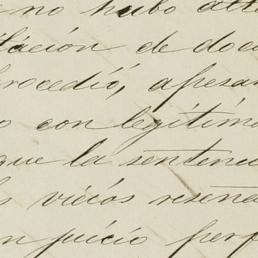 no hubo alte
lación de docu
rocedió, apesar
o con legitima
que la sentenci
s vicios reseña
n juicio perf